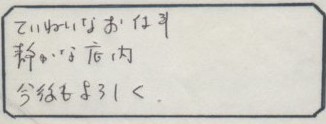 ていねいなお仕事
静かな店内
今後もよろしく.